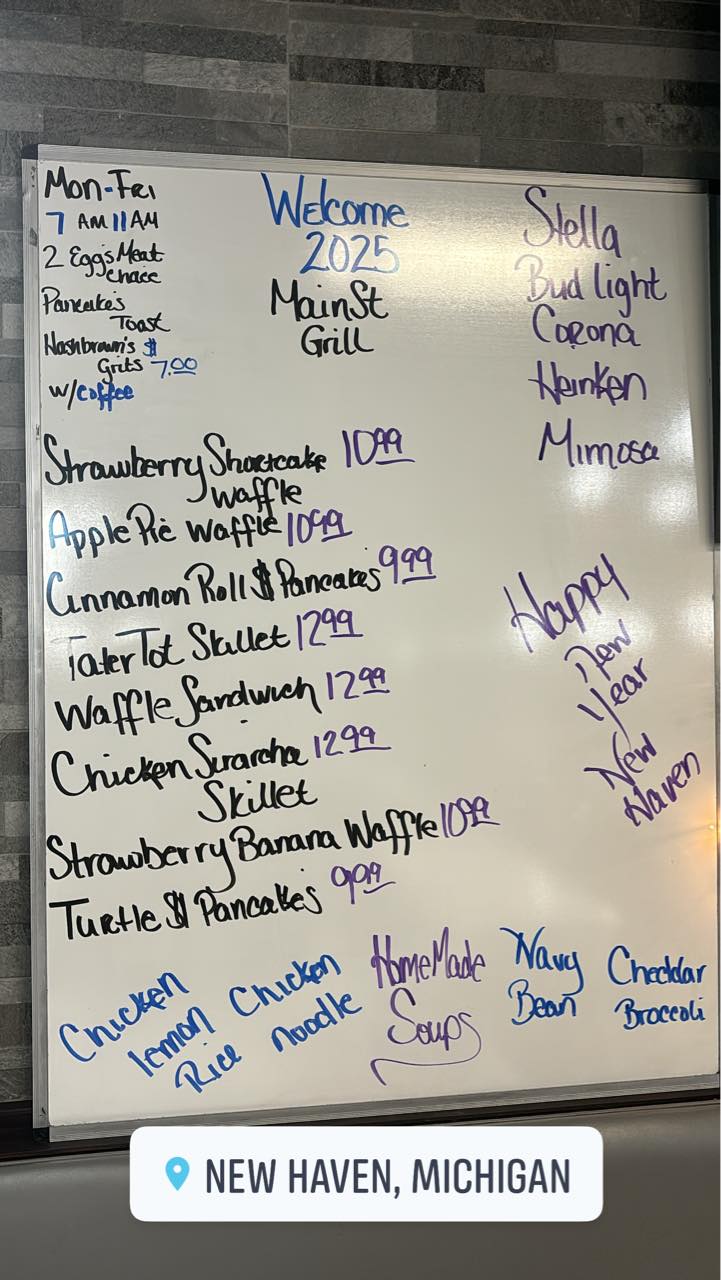 Mon-Fri
7 AM 11 AM
2 Egg's Meat
Choice
Pancake's
Toast
Hashbrown's $
Grits 7.00
w/Coffee
Welcome
2025
Main St
Grill
Stella
Bud light
Corona
Heinken
Mimosa
Strawberry Shortcake 10.99
Waffle
Apple Pie Waffle 10.99
Cinnamon Roll $ Pancakes 9.99
Tater Tot Skillet 12.99
Waffle Sandwich 12.99
Chicken Siraracha 12.99
Skillet
Strawberry Banana Waffle 10.99
Turtle $1 Pancakes 9.99
Happy
New
Year
New
Haven
Chicken
lemon
Rice
Chicken
noodle
HomeMade
Soups
Navy
Bean
Cheddar
Broccoli
NEW HAVEN, MICHIGAN